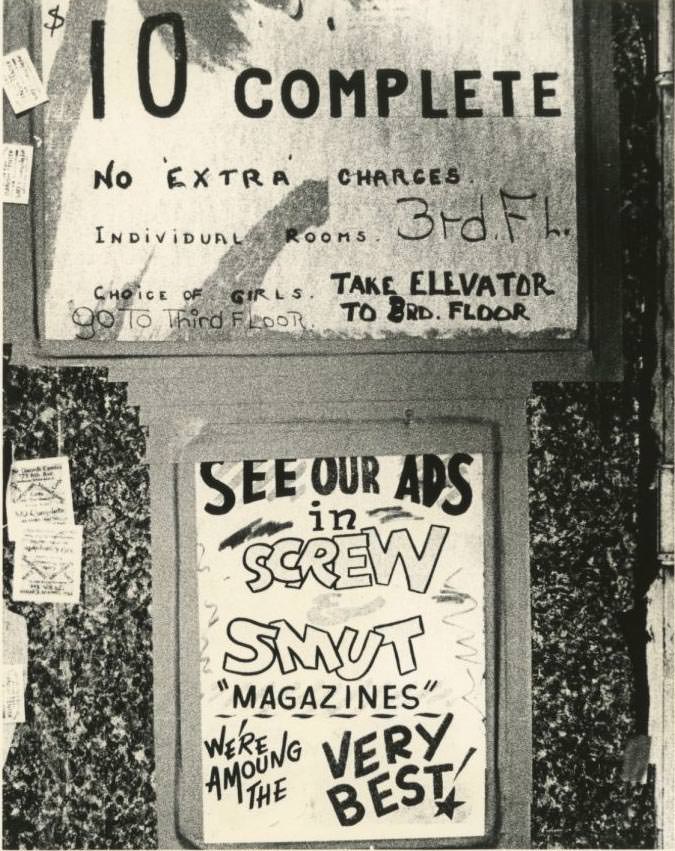 $10 COMPLETE
NO 'EXTRA' CHARGES.
INDIVIDUAL ROOMS. 3rd. FL.
CHOICE OF GIRLS. TAKE ELEVATOR
GO TO Third FLOOR. TO 3RD. FLOOR
SEE OUR ADS
in
SCREW
SMUT
"MAGAZINES"
WE'RE AMOUNG THE
VERY BEST!